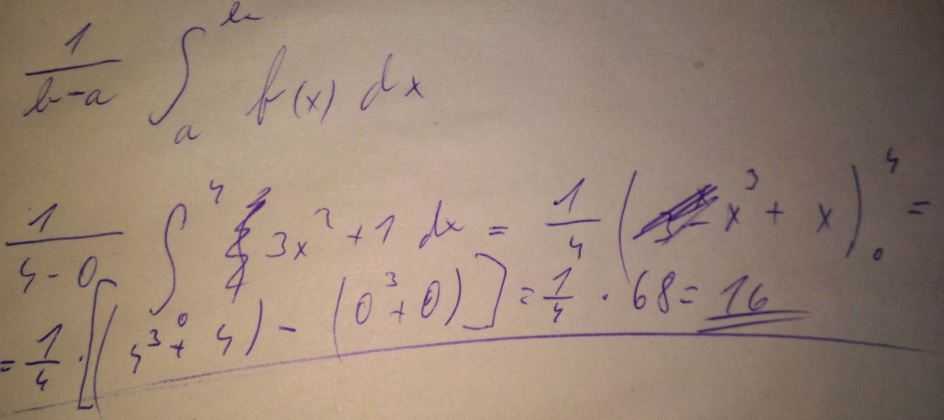 1/(b-a) ∫_a^b f(x) dx
1/(4-0) ∫_0^4 3x² + 1 dx = 1/4 (x³ + x)_0^4 =
= 1/4 · [(4³ + 4) - (0³ + 0)] = 1/4 · 68 = 16